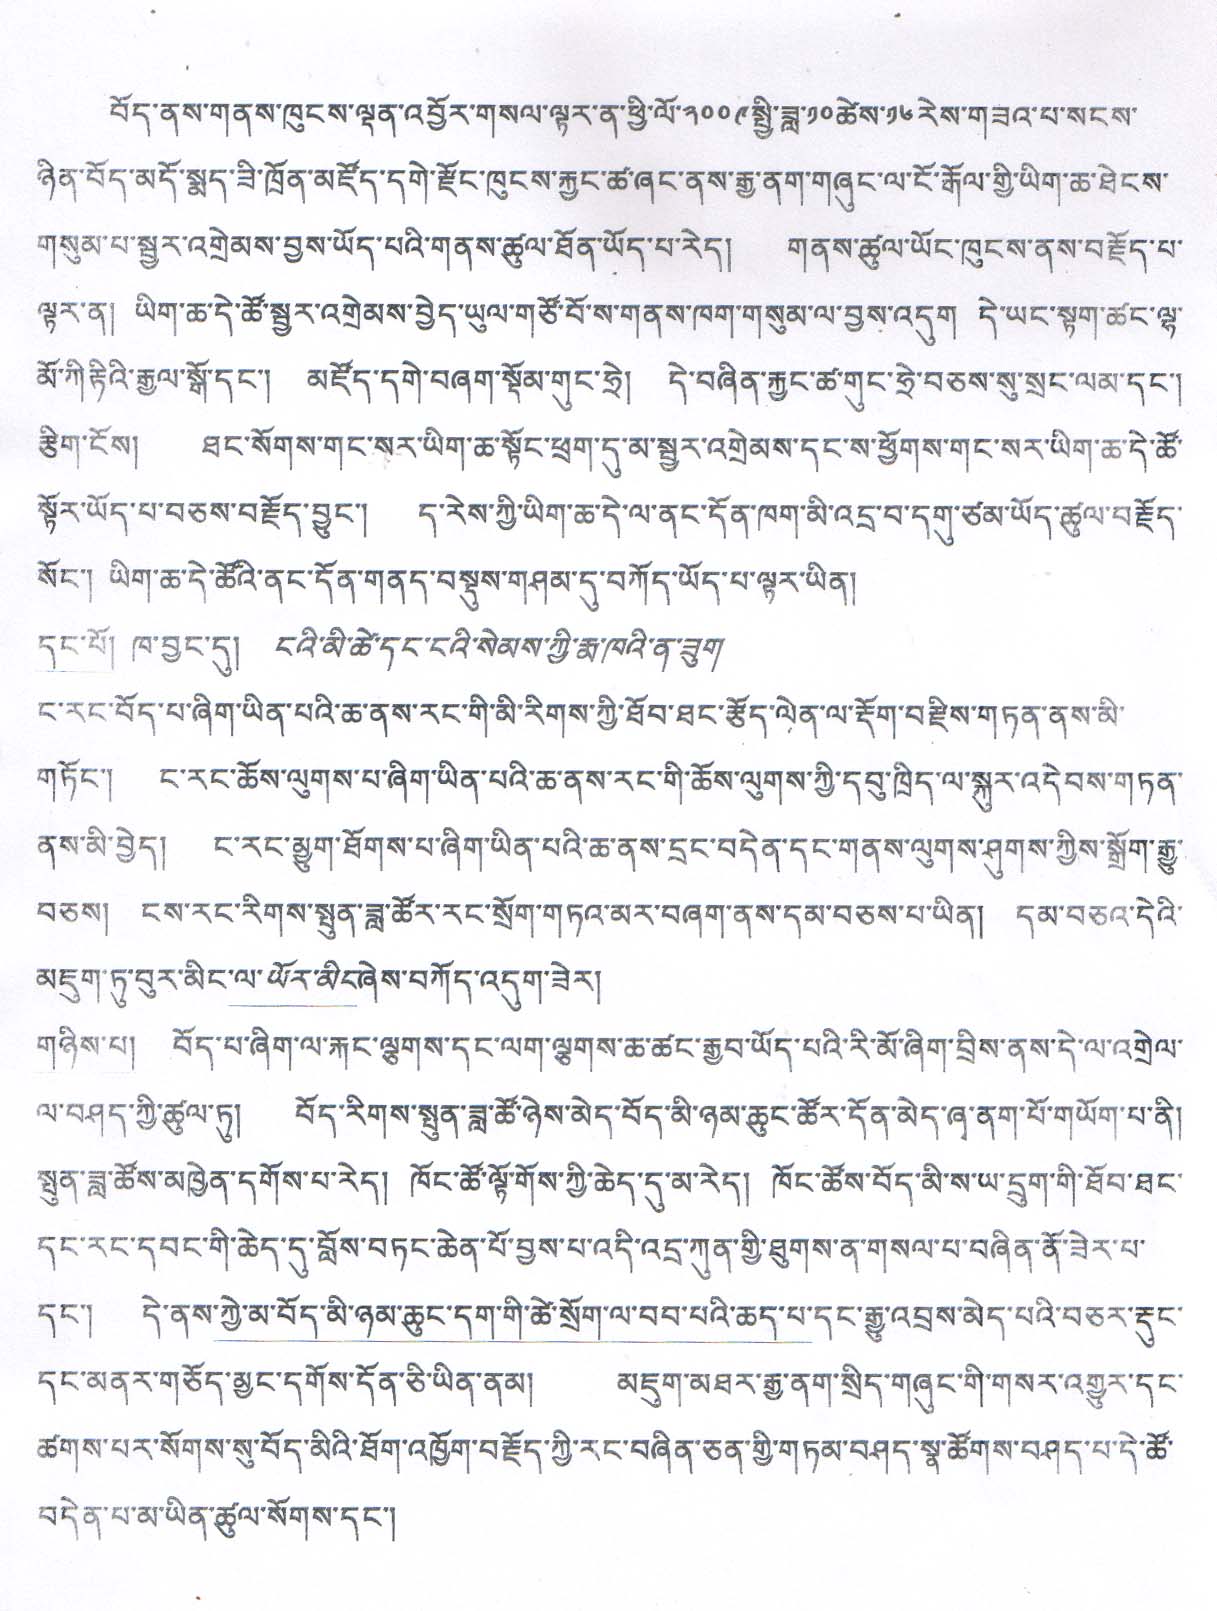 བོད་ནས་གནས་ཁུངས་ལྡན་འབྱོར་གསལ་ལྟར་ན་ཕྱི་ལོ་༢༠༠༩སྤྱི་ཟླ་༡༠ཚེས་༡༦རེས་གཟའ་པ་སངས་
ཉིན་བོད་མདོ་སྨད་ཟི་ཁྲོན་མཛོད་དགེ་རྫོང་ཁུངས་རྐྱང་ཚ་ཞང་ནས་རྒྱ་ནག་གཞུང་ལ་ངོ་རྒོལ་གྱི་ཡིག་ཆ་ཐེངས་
གསུམ་པ་སྦྱར་འགྲེམས་བྱས་ཡོད་པའི་གནས་ཚུལ་ཐོན་ཡོད་པ་རེད། གནས་ཚུལ་ཡོང་ཁུངས་ནས་བརྗོད་པ་
ལྟར་ན། ཡིག་ཆ་དེ་ཚོ་སྦྱར་འགྲེམས་བྱེད་ཡུལ་གཙོ་བོ་ས་གནས་ཁག་གསུམ་ལ་བྱས་འདུག དེ་ཡང་སྟག་ཚང་ལྷ་
མོ་ཀིརྟིའི་རྒྱལ་སྒོ་དང་། མཛོད་དགེ་བཞག་སྡོམ་གུང་ཧྲེ། དེ་བཞིན་རྐྱང་ཚ་གུང་ཧྲེ་བཅས་སུ་སྲང་ལམ་དང་།
རྩིག་ངོས། ཐང་སོགས་གང་སར་ཡིག་ཆ་སྟོང་ཕྲག་དུ་མ་སྦྱར་འགྲེམས་དང་ས་ཕྱོགས་གང་སར་ཡིག་ཆ་དེ་ཚོ་
སྟོར་ཡོད་པ་བཅས་བརྗོད་བྱུང་། ད་རེས་ཀྱི་ཡིག་ཆ་དེ་ལ་ནང་དོན་ཁག་མི་འདྲ་བ་དགུ་ཙམ་ཡོད་ཚུལ་བརྗོད་
སོང་། ཡིག་ཆ་དེ་ཚོའི་ནང་དོན་གནད་བསྡུས་གཤམ་དུ་བཀོད་ཡོད་པ་ལྟར་ཡིན།
དང་པོ། ཁ་བྱང་དུ། ངའི་མི་ཚེ་དང་ངའི་སེམས་ཀྱི་རྨ་ཁའི་ན་ཟུག
ང་རང་བོད་པ་ཞིག་ཡིན་པའི་ཆ་ནས་རང་གི་མི་རིགས་ཀྱི་ཐོབ་ཐང་རྩོད་ལེན་ལ་རྡོག་བརྫིས་གཏན་ནས་མི་
གཏོང་། ང་རང་ཆོས་ལུགས་པ་ཞིག་ཡིན་པའི་ཆ་ནས་རང་གི་ཆོས་ལུགས་ཀྱི་དབུ་ཁྲིད་ལ་སྐུར་འདེབས་གཏན་
ནས་མི་བྱེད། ང་རང་མྱུག་ཐོགས་པ་ཞིག་ཡིན་པའི་ཆ་ནས་དྲང་བདེན་དང་གནས་ལུགས་ཤུགས་ཀྱིས་སྒྲོག་རྒྱུ་
བཅས། ངས་རང་རིགས་སྤུན་ཟླ་ཚོར་རང་སྲོག་གཏའ་མར་བཞག་ནས་དམ་བཅས་པ་ཡིན། དམ་བཅའ་དེའི་
མཇུག་ཏུ་བུར་མིང་ལ་ཡོར་མིངཞེས་བཀོད་འདུག་ཟེར།
གཉིས་པ། བོད་པ་ཞིག་ལ་རྐང་ལྕགས་དང་ལག་ལྕགས་ཆ་ཚང་རྒྱབ་ཡོད་པའི་རི་མོ་ཞིག་བྲིས་ནས་དེ་ལ་འགྲེལ་
ལ་བཤད་ཀྱི་ཚུལ་ཏུ། བོད་རིགས་སྤུན་ཟླ་ཚོ་ཉེས་མེད་བོད་མི་ཉམ་ཆུང་ཚོར་དོན་མེད་ཞྭ་ནག་པོ་གཡོག་པ་ནི།
སྤུན་ཟླ་ཚོས་མཁྱེན་དགོས་པ་རེད། ཁོང་ཚོ་ལྟོ་གོས་ཀྱི་ཆེད་དུ་མ་རེད། ཁོང་ཚོས་བོད་མི་ས་ཡ་དྲུག་གི་ཐོབ་ཐང་
དང་རང་དབང་གི་ཆེད་དུ་བློས་བཏང་ཆེན་པོ་བྱས་པ་འདི་འདྲ་ཀུན་གྱི་ཐུགས་ན་གསལ་པ་བཞིན་ནོ་ཟེར་པ་
དང་། དེ་ནས་ཀྱེ་མ་བོད་མི་ཉམ་ཆུང་དག་གི་ཚེ་སྲོག་ལ་བབ་པའི་ཆད་པ་དང་རྒྱུ་འབྲས་མེད་པའི་བཅར་རྡུང་
དང་མནར་གཅོད་མྱང་དགོས་དོན་ཅི་ཡིན་ནམ། མཇུག་མཐར་རྒྱ་ནག་སྲིད་གཞུང་གི་གསར་འགྱུར་དང་
ཚགས་པར་སོགས་སུ་བོད་མིའི་ཐོག་འཁྱོག་བརྗོད་ཀྱི་རང་བཞིན་ཅན་གྱི་གཏམ་བཤད་སྣ་ཚོགས་བཤད་པ་དེ་ཚོ་
བདེན་པ་མ་ཡིན་ཚུལ་སོགས་དང་།